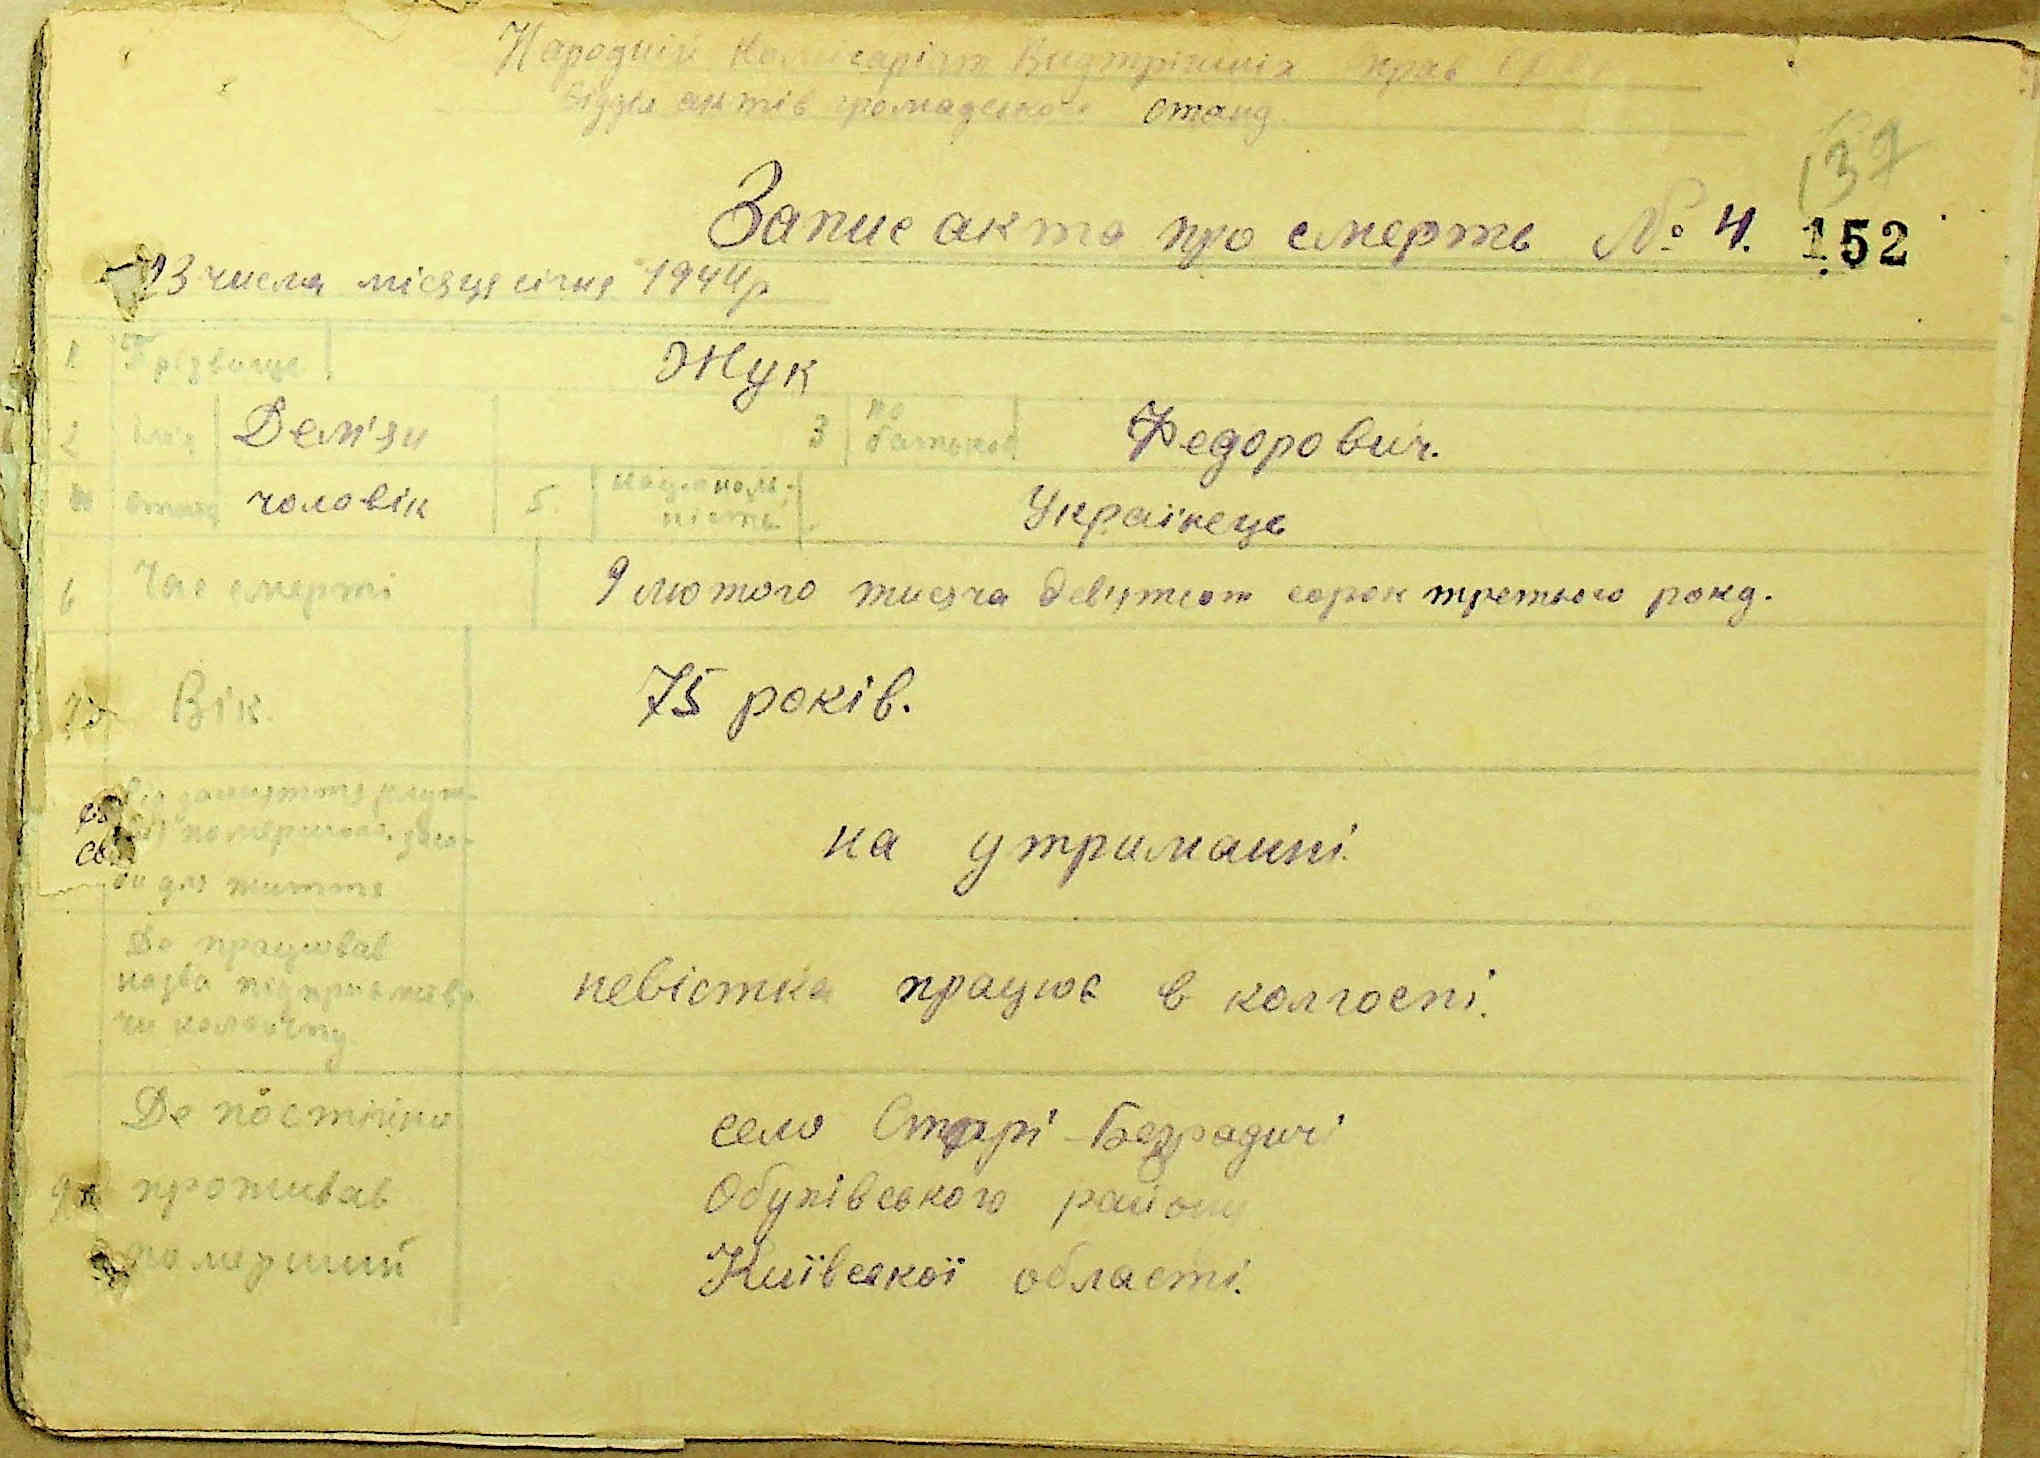 Народній Комісаріят Внутрішніх прав
Відділ актів громадського стану
139
Запис акта про смерть № 4. 152
13 числа місяця січня 1944р
1 Прізвище Жук
2 Ім'я Дем'ян 3 по батькові Федорович.
4 стать чоловік 5. національ-ність Українець
6 Час смерті 9 лютого тисяча девятсот сорок третього року.
7 Вік 75 років.
занняття
помершого
на утриманні.
би для життя
Де працював
назва підприємства невістка працює в колгоспі.
чи колгоспу
Де постійно село Старі-Безрадичі
9 проживав Обухівського району
померший Київської області.